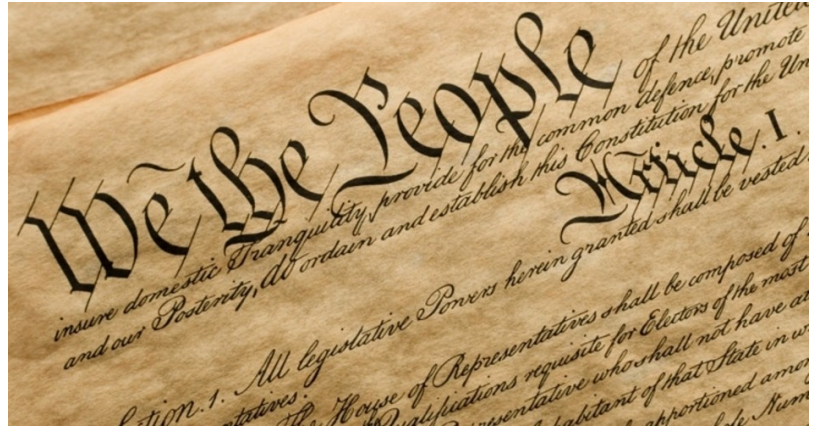 We the People of the United
insure domestic Tranquility, provide for the common defence, promote
and our Posterity, do ordain and establish this Constitution for the Un
Article. I.
ction. 1. All legislative Powers herein granted shall be vested
ntatives.
The House of Representatives shall be composed of
Qualifications requisite for Electors of the most
resentative who shall not have at
habitant of that State in w
apportioned amon
ole Num